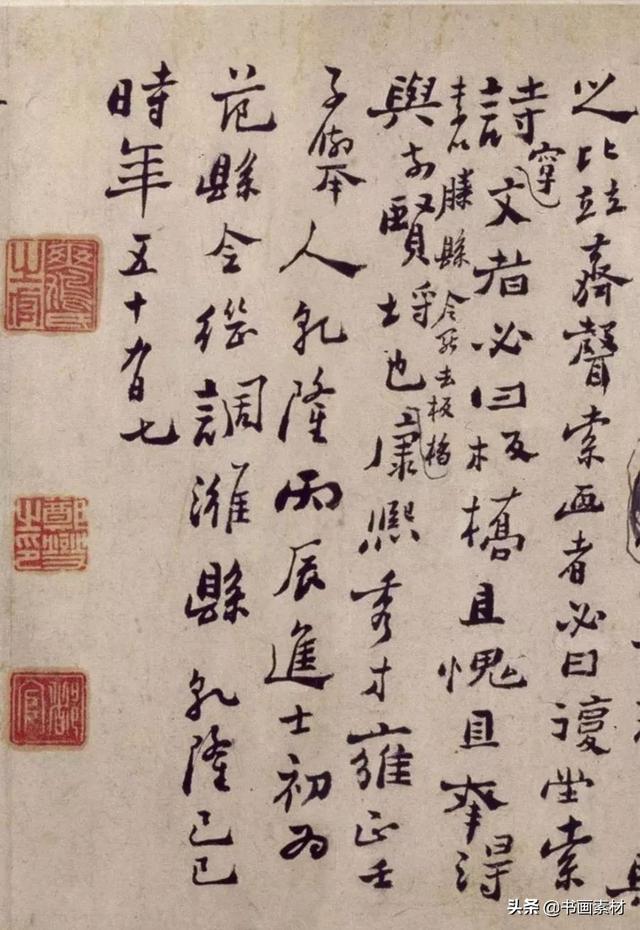 之比竝齊聲索画者必曰復堂索
詩字文者必曰板橋且愧且幸得
滕縣令去板橋
與前賢埒也康熙秀才雍正壬
子舉人乾隆丙辰進士初為
范縣令繼調濰縣乾隆己巳
時年五十有七
爽鳩氏之官
鄭燮之印
头条 @书画素材